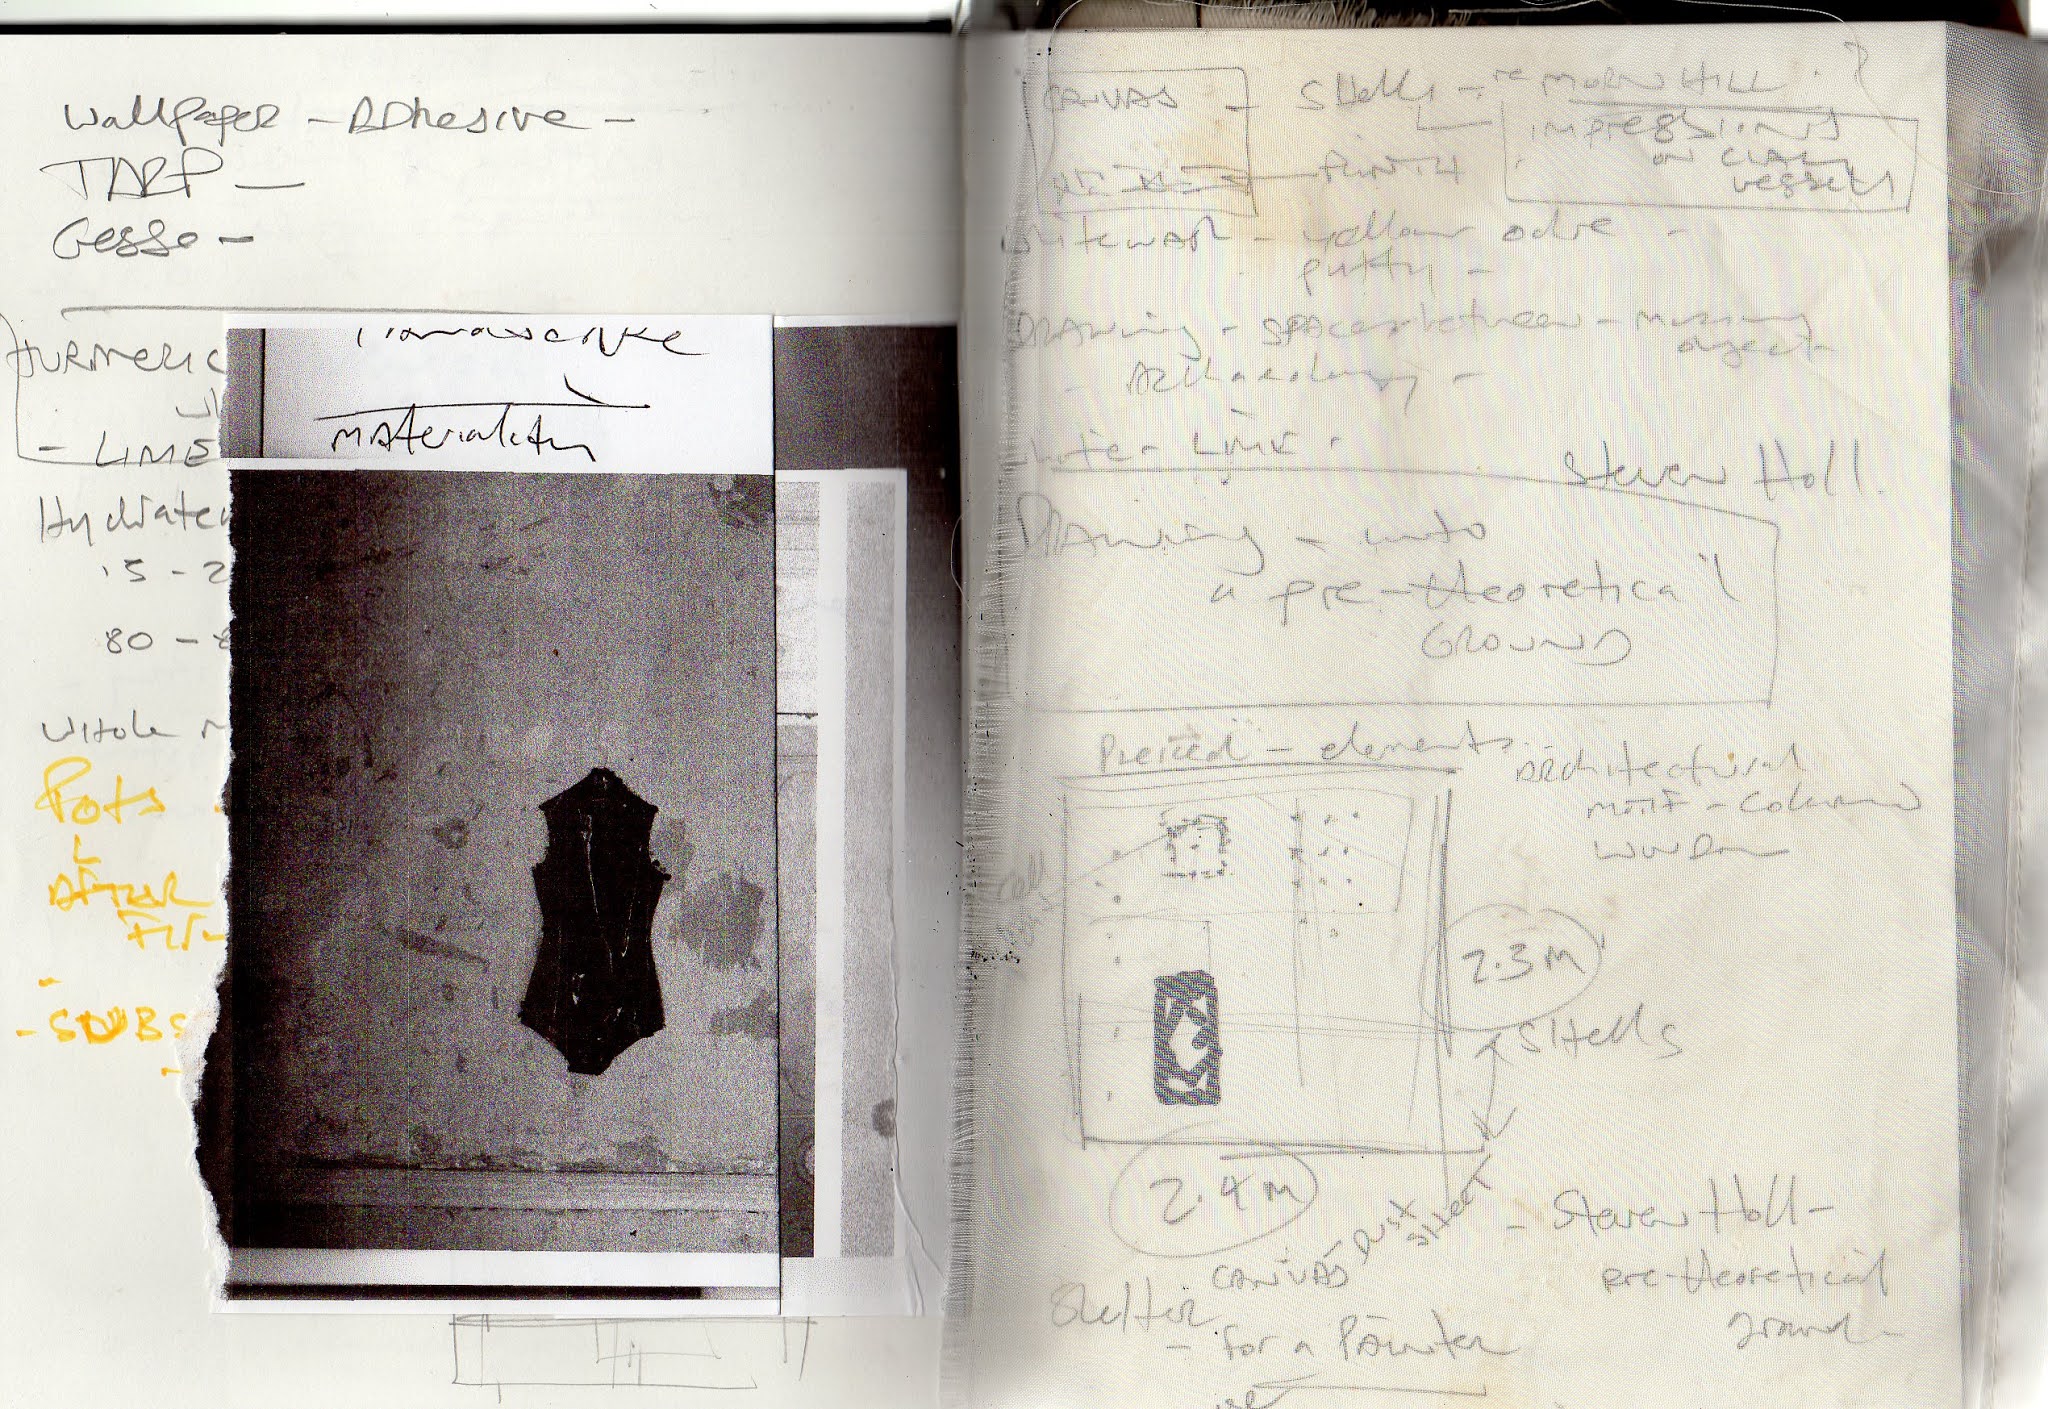 Wallpaper - ADhesive -
TARP -
Gesso -
TURMERIC
- LIME
Hydrated
15 - 2
80 - 8
WHole
Pots
AFTER
- SUBS
materiality
CANVAS - SHells - re MORN HILL ?
IMPressIONS
ON CLAY
vessels
PLINTH
whitewash - yellow ochre -
putty -
DRAWING - SPAces between - Missing
object
- ARchaeology -
white - LIME .
Steven Holl.
DRAWING - unto
a pre-theoretical
GROUND
Pierced - elements
ARchitectural
motif - Column
WINDOW
2.3 M
SHells
2.4 M
CANVAS DUST sheet
- Steven Holl -
pre-theoretical
ground -
Shelter
- for a Painter